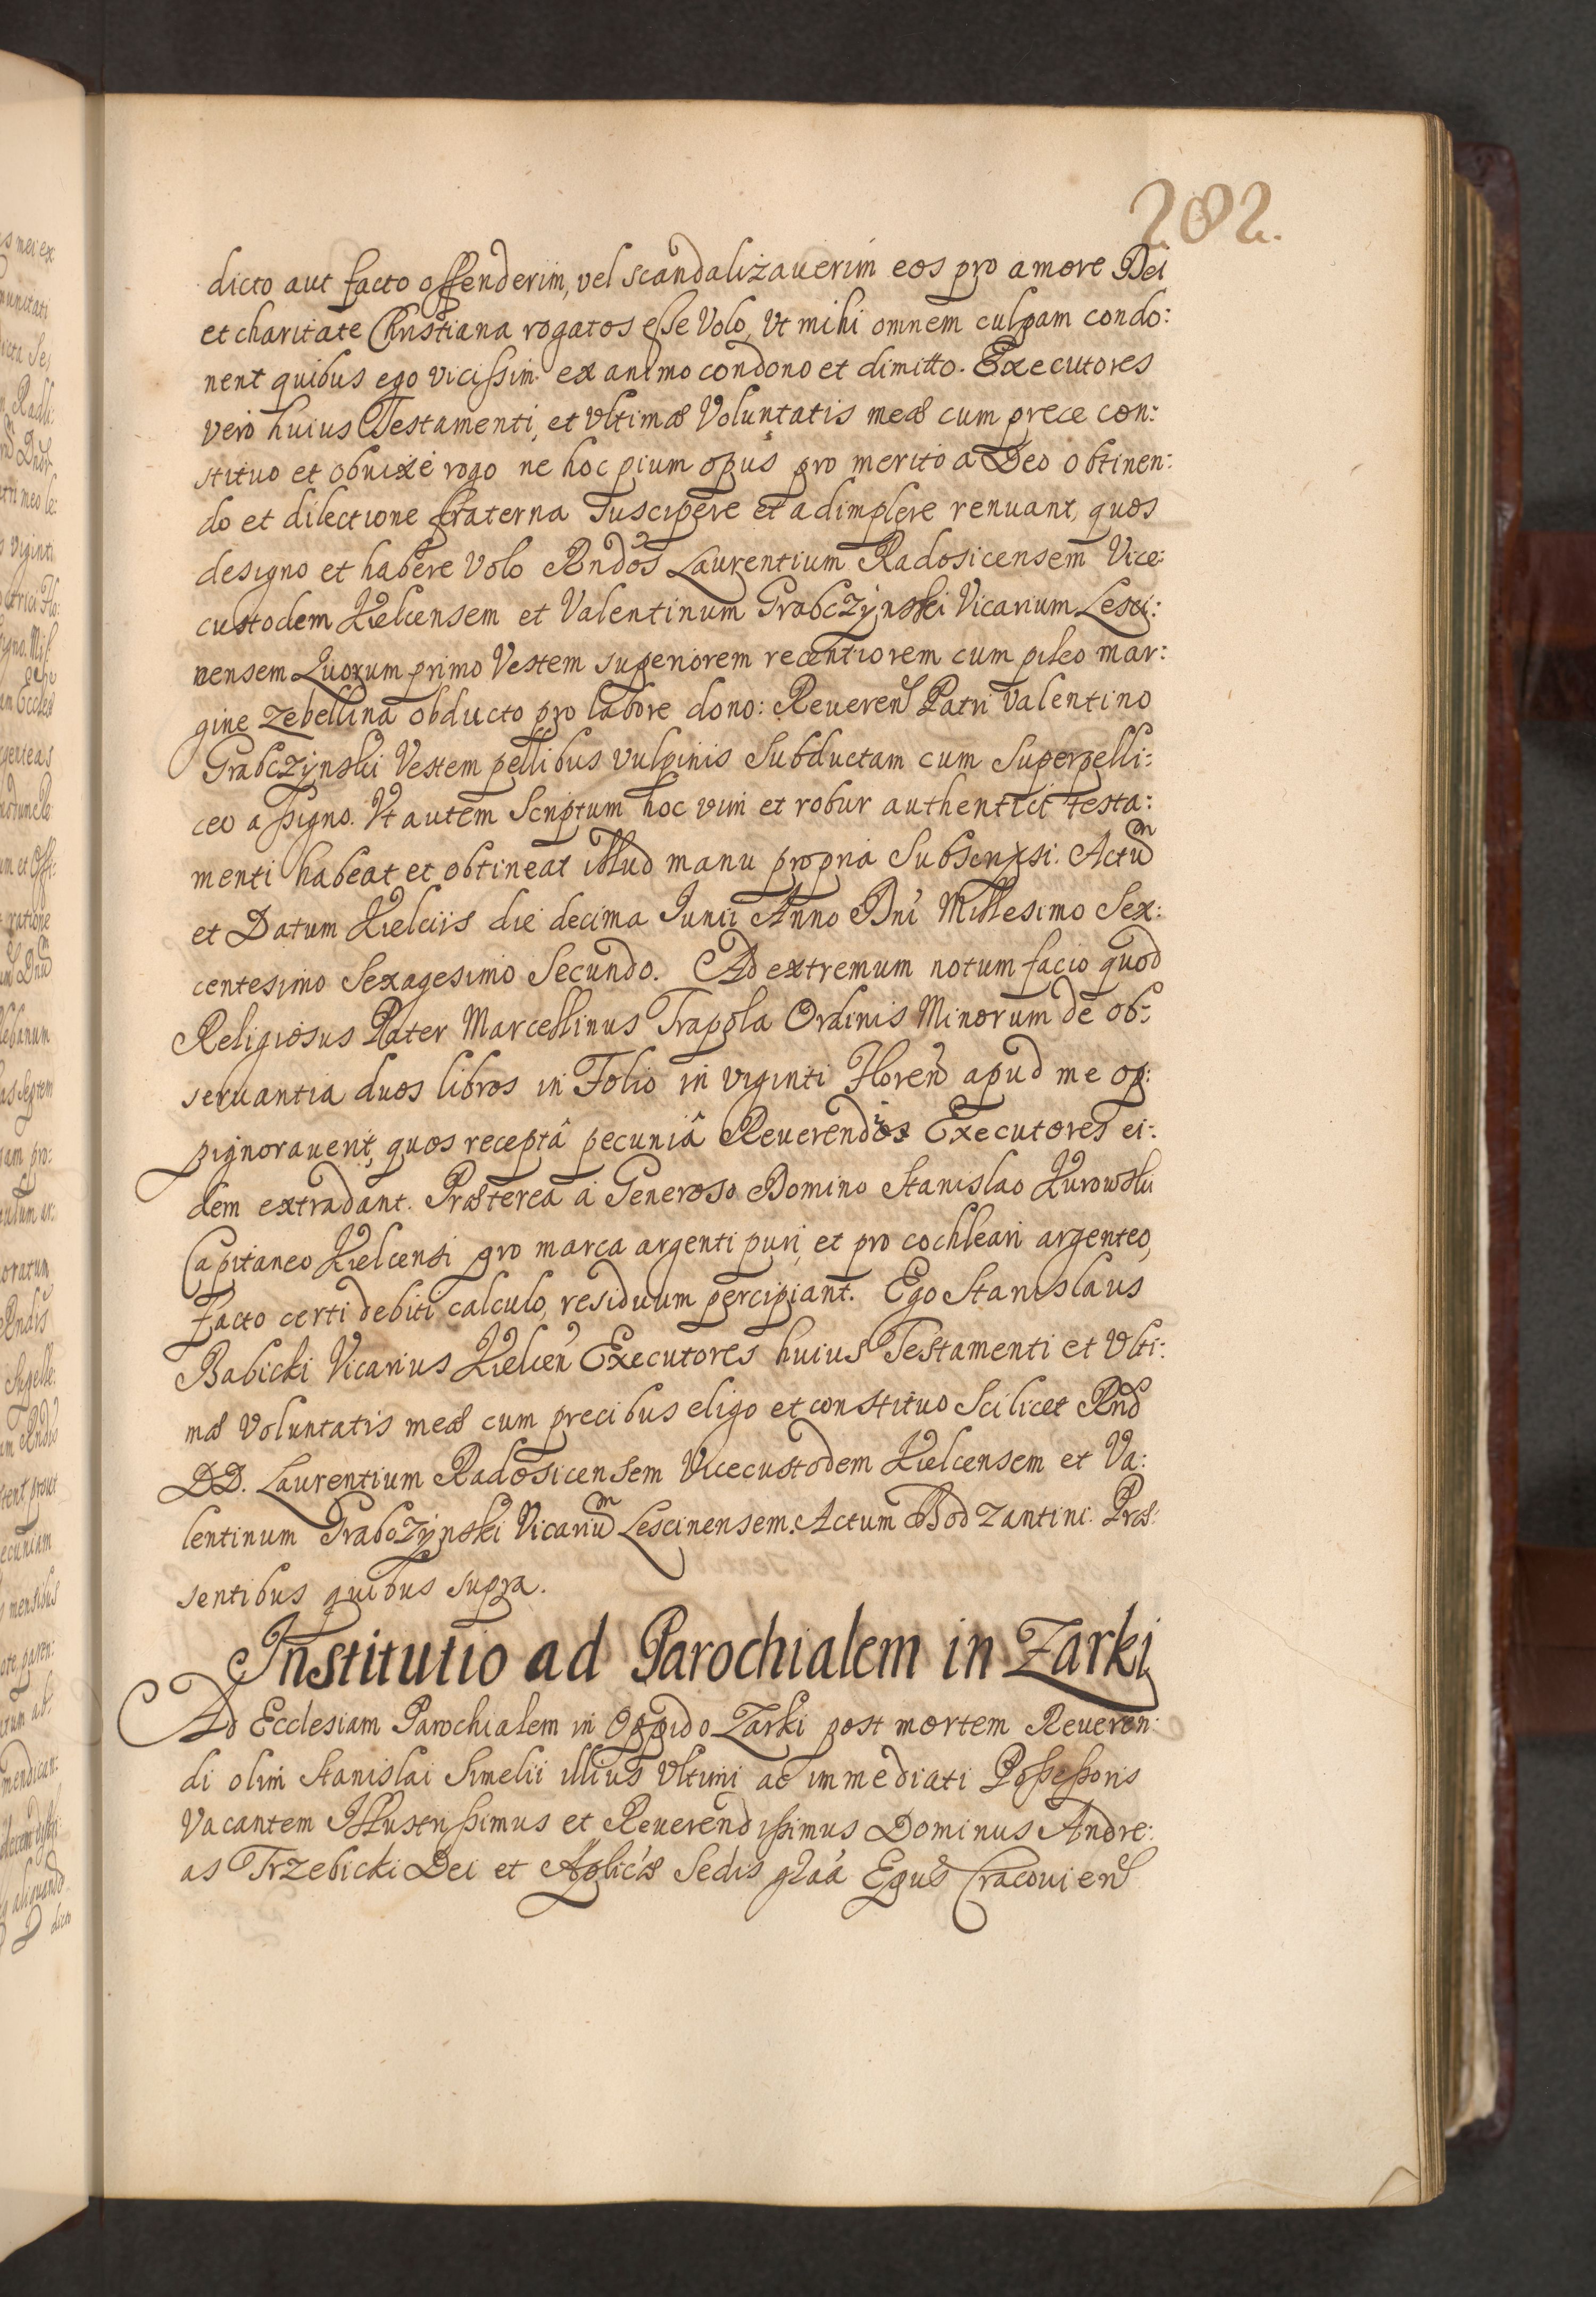 282.
dicto aut facto offenderim, vel scandalizauerim eos pro amore Dei
et charitate Christiana rogatos esse Volo, Vt mihi omnem culpam condo:
nent quibus ego vicissim ex animo condono et dimitto. Executores
vero huius Testamenti, et Vltimæ Voluntatis meæ cum prece con:
stituo et obnixè rogo ne hoc pium opus pro merito a Deo obtinen:
do et dilectione fraterna suscipere et adimplere renuant, quos
designo et habere Volo Rndos Laurentium Radosicensem Vice:
custodem Kielcensem et Valentinum Grabczynski Vicarium Lesci:
nensem Quorum primo Vestem superiorem recentiorem cum pileo mar:
gine zebellina obducto pro labore dono: Reueren Patri Valentino
Grabczynski Vestem pellibus vulpinis Subductam cum Superpelli:
ceo assigno. Vt autem Scriptum hoc vim et robur authentici testa:
menti habeat et obtineat illud manu propria Subscripsi. Actum
et Datum Kielciis die decima Iunii Anno Dni Millesimo Sex:
centesimo Sexagesimo Secundo. Ad extremum notum facio quod
Religiosus Pater Marcellinus Trapola Ordinis Minorum de ob:
seruantia duos libros in Folio in viginti Floren apud me op:
pignorauerit, quos receptâ pecuniâ Reuerendos Executores ei:
dem extradant. Præterea à Generoso Domino Stanislao Kurowski
Capitaneo Kielcensi pro marca argenti puri et pro cochleari argenteo,
facto certi debiti calculo, residuum percipiant. Ego Stanislaus
Babicki Vicarius Kielcen Executores huius Testamenti et Vlti:
mæ Voluntatis meæ cum precibus eligo et constituo Scilicet Rnd
DD. Laurentium Radosicensem Vicecustodem Kielcensem et Va:
lentinum Grabczynski Vicarium Lescinensem. Actum Bodzantini. Præ:
sentibus quibus supra.
Institutio ad Parochialem in Zarki
Ad Ecclesiam Parochialem in Oppido Zarki post mortem Reueren:
di olim Stanislai Simelii illius Vltimi ac immediati Possessoris
Vacantem Illustrissimus et Reuerendissimus Dominus Andre:
as Trzebicki Dei et Aplicæ Sedis graa Epus Cracouien